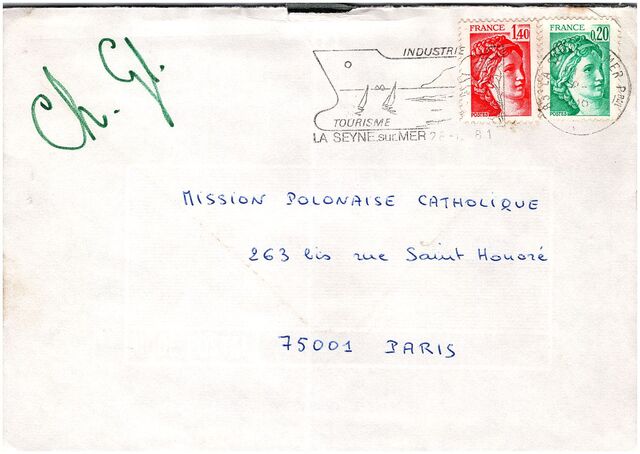 Ch. Gł.
INDUSTRIE
TOURISME
LA SEYNE sur MER
FRANCE
1,40
POSTES
FRANCE
0,20
POSTES
MISSION POLONAISE CATHOLIQUE
263 bis rue Saint Honoré
75001 PARIS